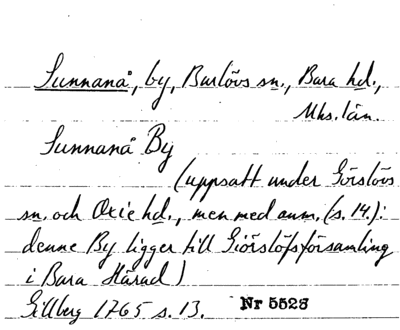 Sunnanå, by, Burlövs sn., Bara hd.,
Mhs. län.
Sunnanå By
(uppsatt under Görslövs
sn. och Oxie hd., men med anm. (s. 14.):
denne By ligger till Giörslöfsförsamling
i Bara Härad)
Gillberg 1765 s. 13. Nr 5523